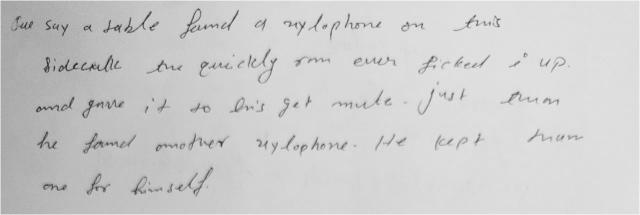 One say a sable found a xylophone on this
Sidewalk the quickly ran over picked i up.
and gave it to his get mule. just than
he found another xylophone. He kept than
one for himself.